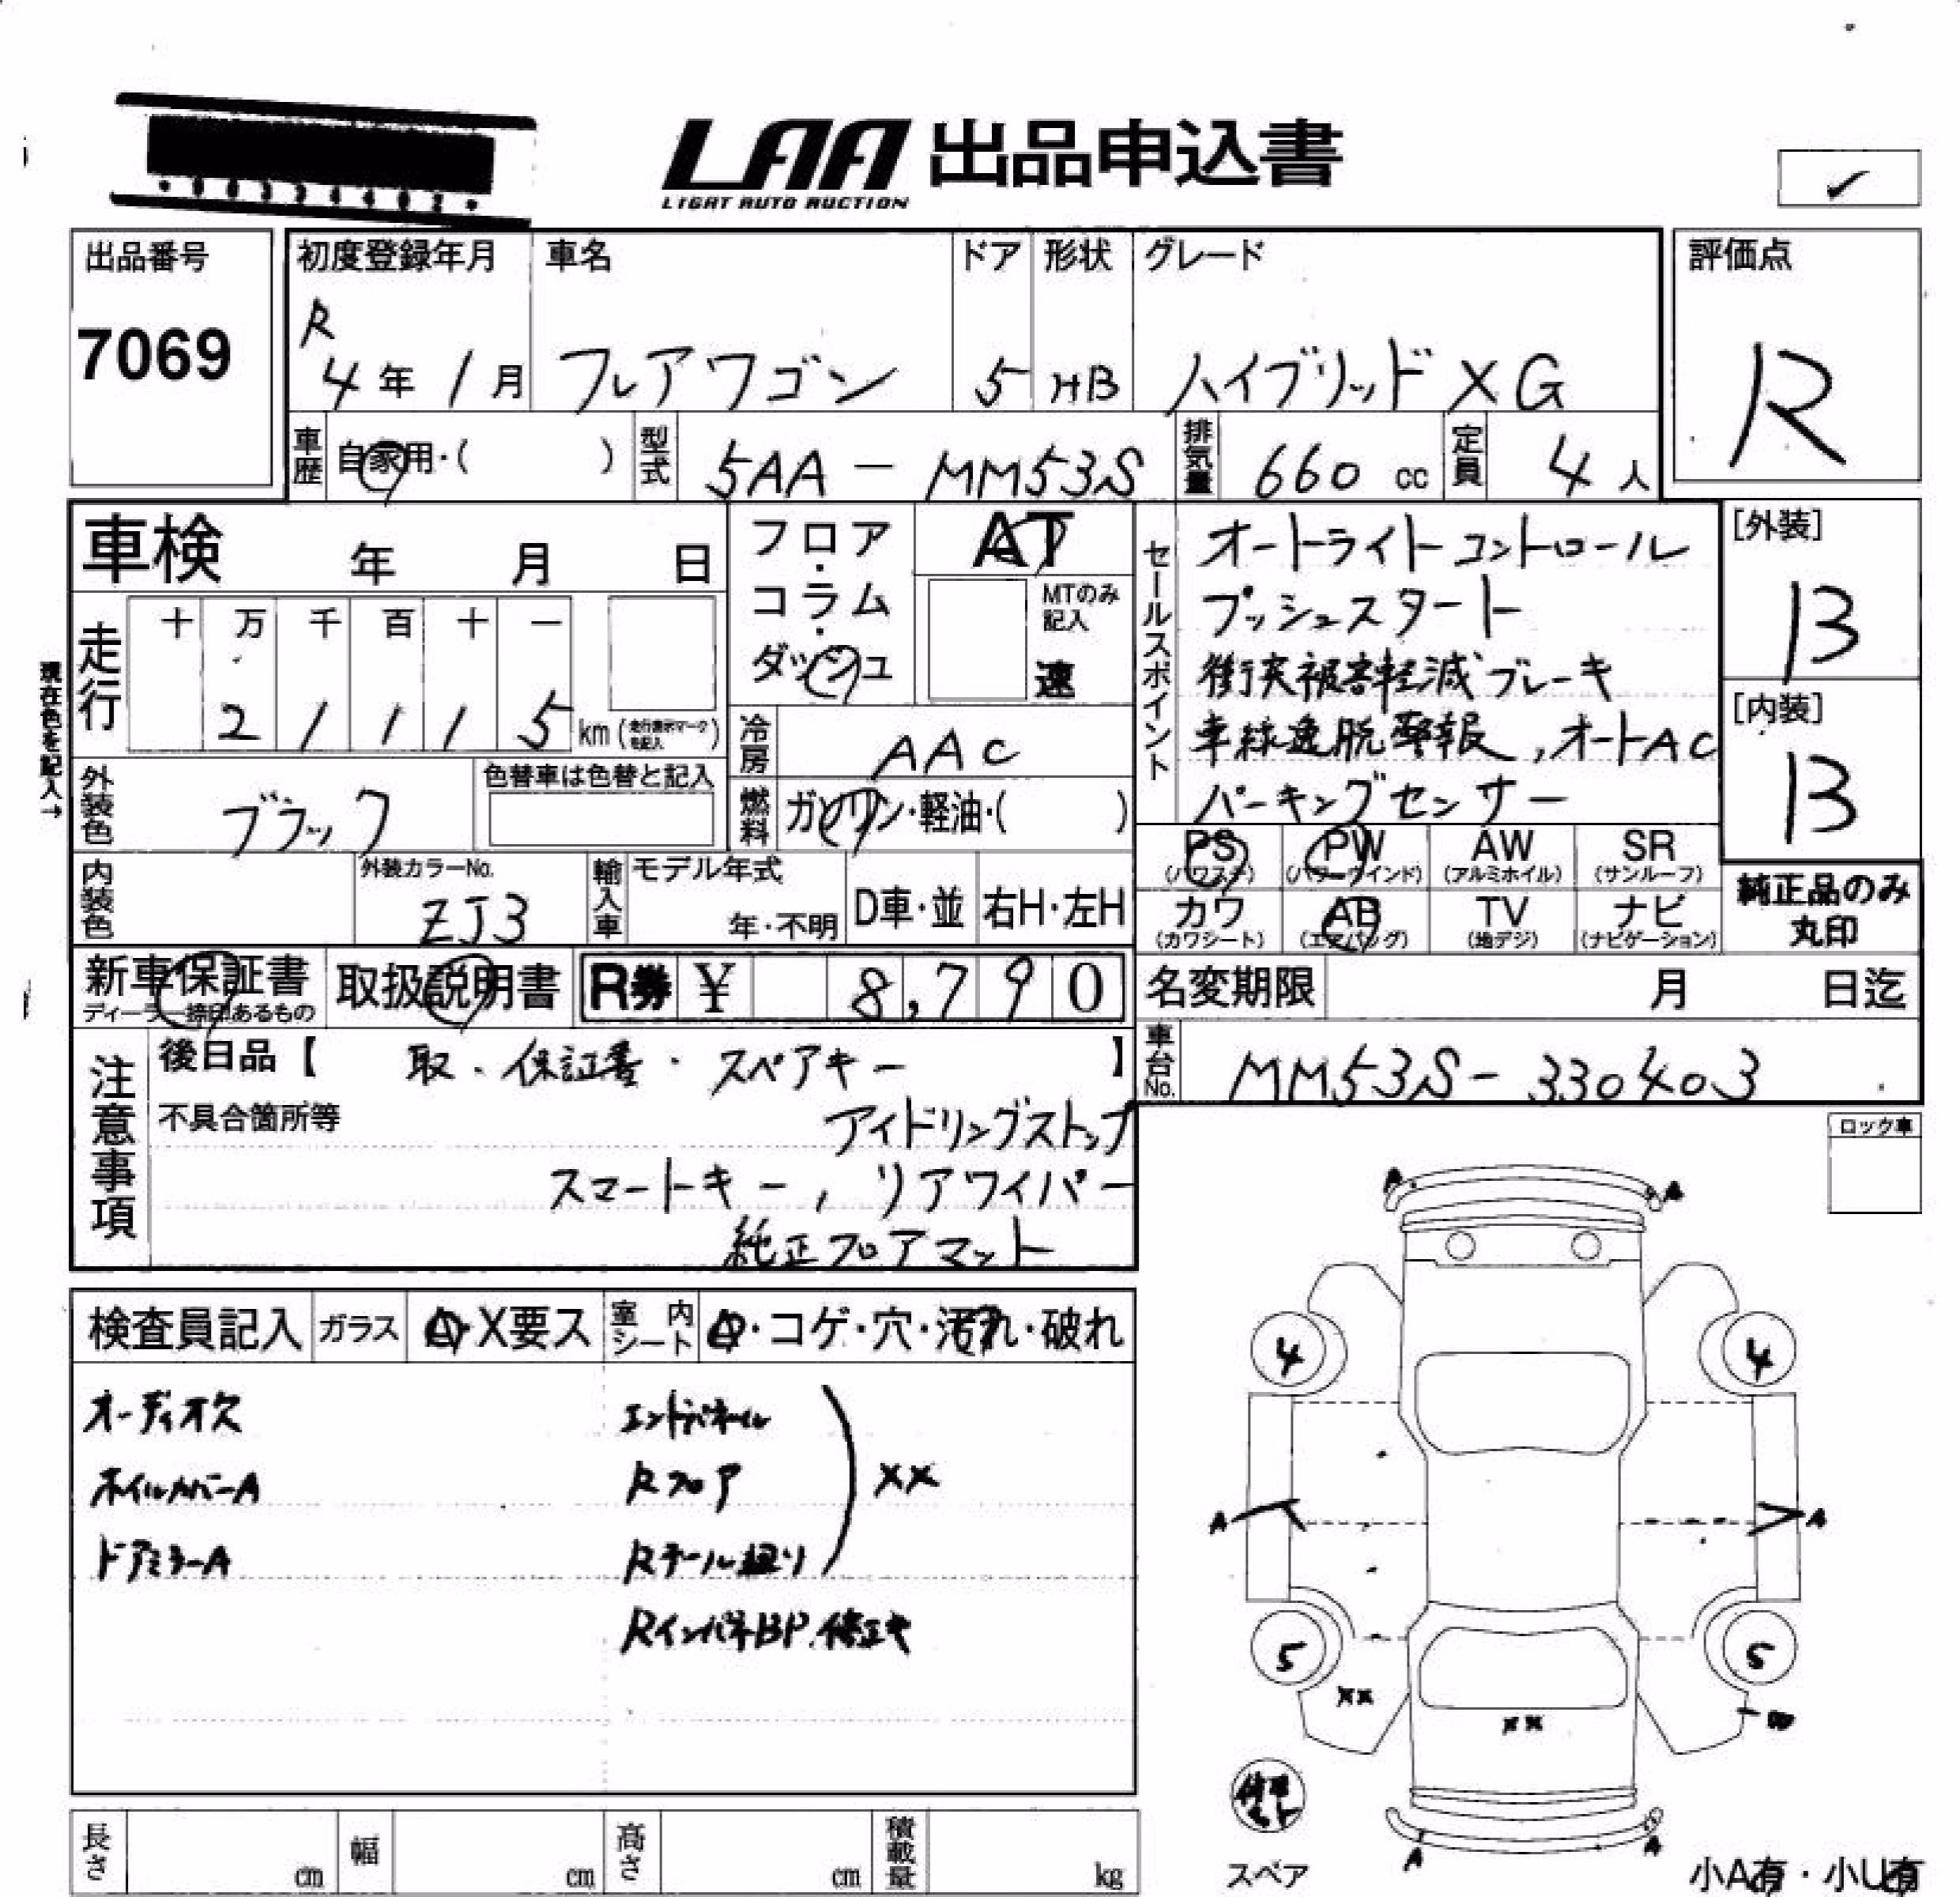 LAA 出品申込書
LIGHT AUTO AUCTION
出品番号
7069
初度登録年月
R
4年 1月
車名
フレアワゴン
ドア
5
形状
HB
グレード
ハイブリッド XG
評価点
R
車歴
自家用・( )
型式
5AA - MM53S
排気量
660 cc
定員
4 人
車検 年 月 日
フロア・コラム・ダッシュ
AT
MTのみ記入
速
セールスポイント
オートライトコントロール
プッシュスタート
衝突被害軽減ブレーキ
車線逸脱警報, オートAC
パーキングセンサー
[外装]
B
[内装]
B
現在色を記入→
走行
十 万 千 百 十 一
2 1 1 1 5 km (走行表示マークを記入)
冷房
AAC
燃料
ガソリン・軽油・( )
外装色
ブラック
色替車は色替と記入
内装色
外装カラーNo.
ZJ3
輸入車
モデル年式
年・不明
D車・並
右H・左H
PS (パワステ)
PW (パワーウインド)
AW (アルミホイル)
SR (サンルーフ)
カワ (カワシート)
AB (エアバッグ)
TV (地デジ)
ナビ (ナビゲーション)
純正品のみ
丸印
新車保証書
ディーラー捺印あるもの
取扱説明書
R券 ¥ 8,790
名変期限 月 日迄
車台No.
MM53S-330403
注意事項
後日品【 取・保証書・スペアキー 】
不具合箇所等
アイドリングストップ
スマートキー, リアワイパー
純正フロアマット
ロック車
検査員記入
ガラス
A・X要ス
室内シート
A・コゲ・穴・汚れ・破れ
オーディオ欠
ホイルカバーA
ドアミラーA
エンドパネル
Rフロア
Rテール廻り
XX
RインパネBP.修正キ
A A
4 4
A A
5 5
XX
XX
A A
スペア
小A有・小U有
長さ cm
幅 cm
高さ cm
積載量 kg